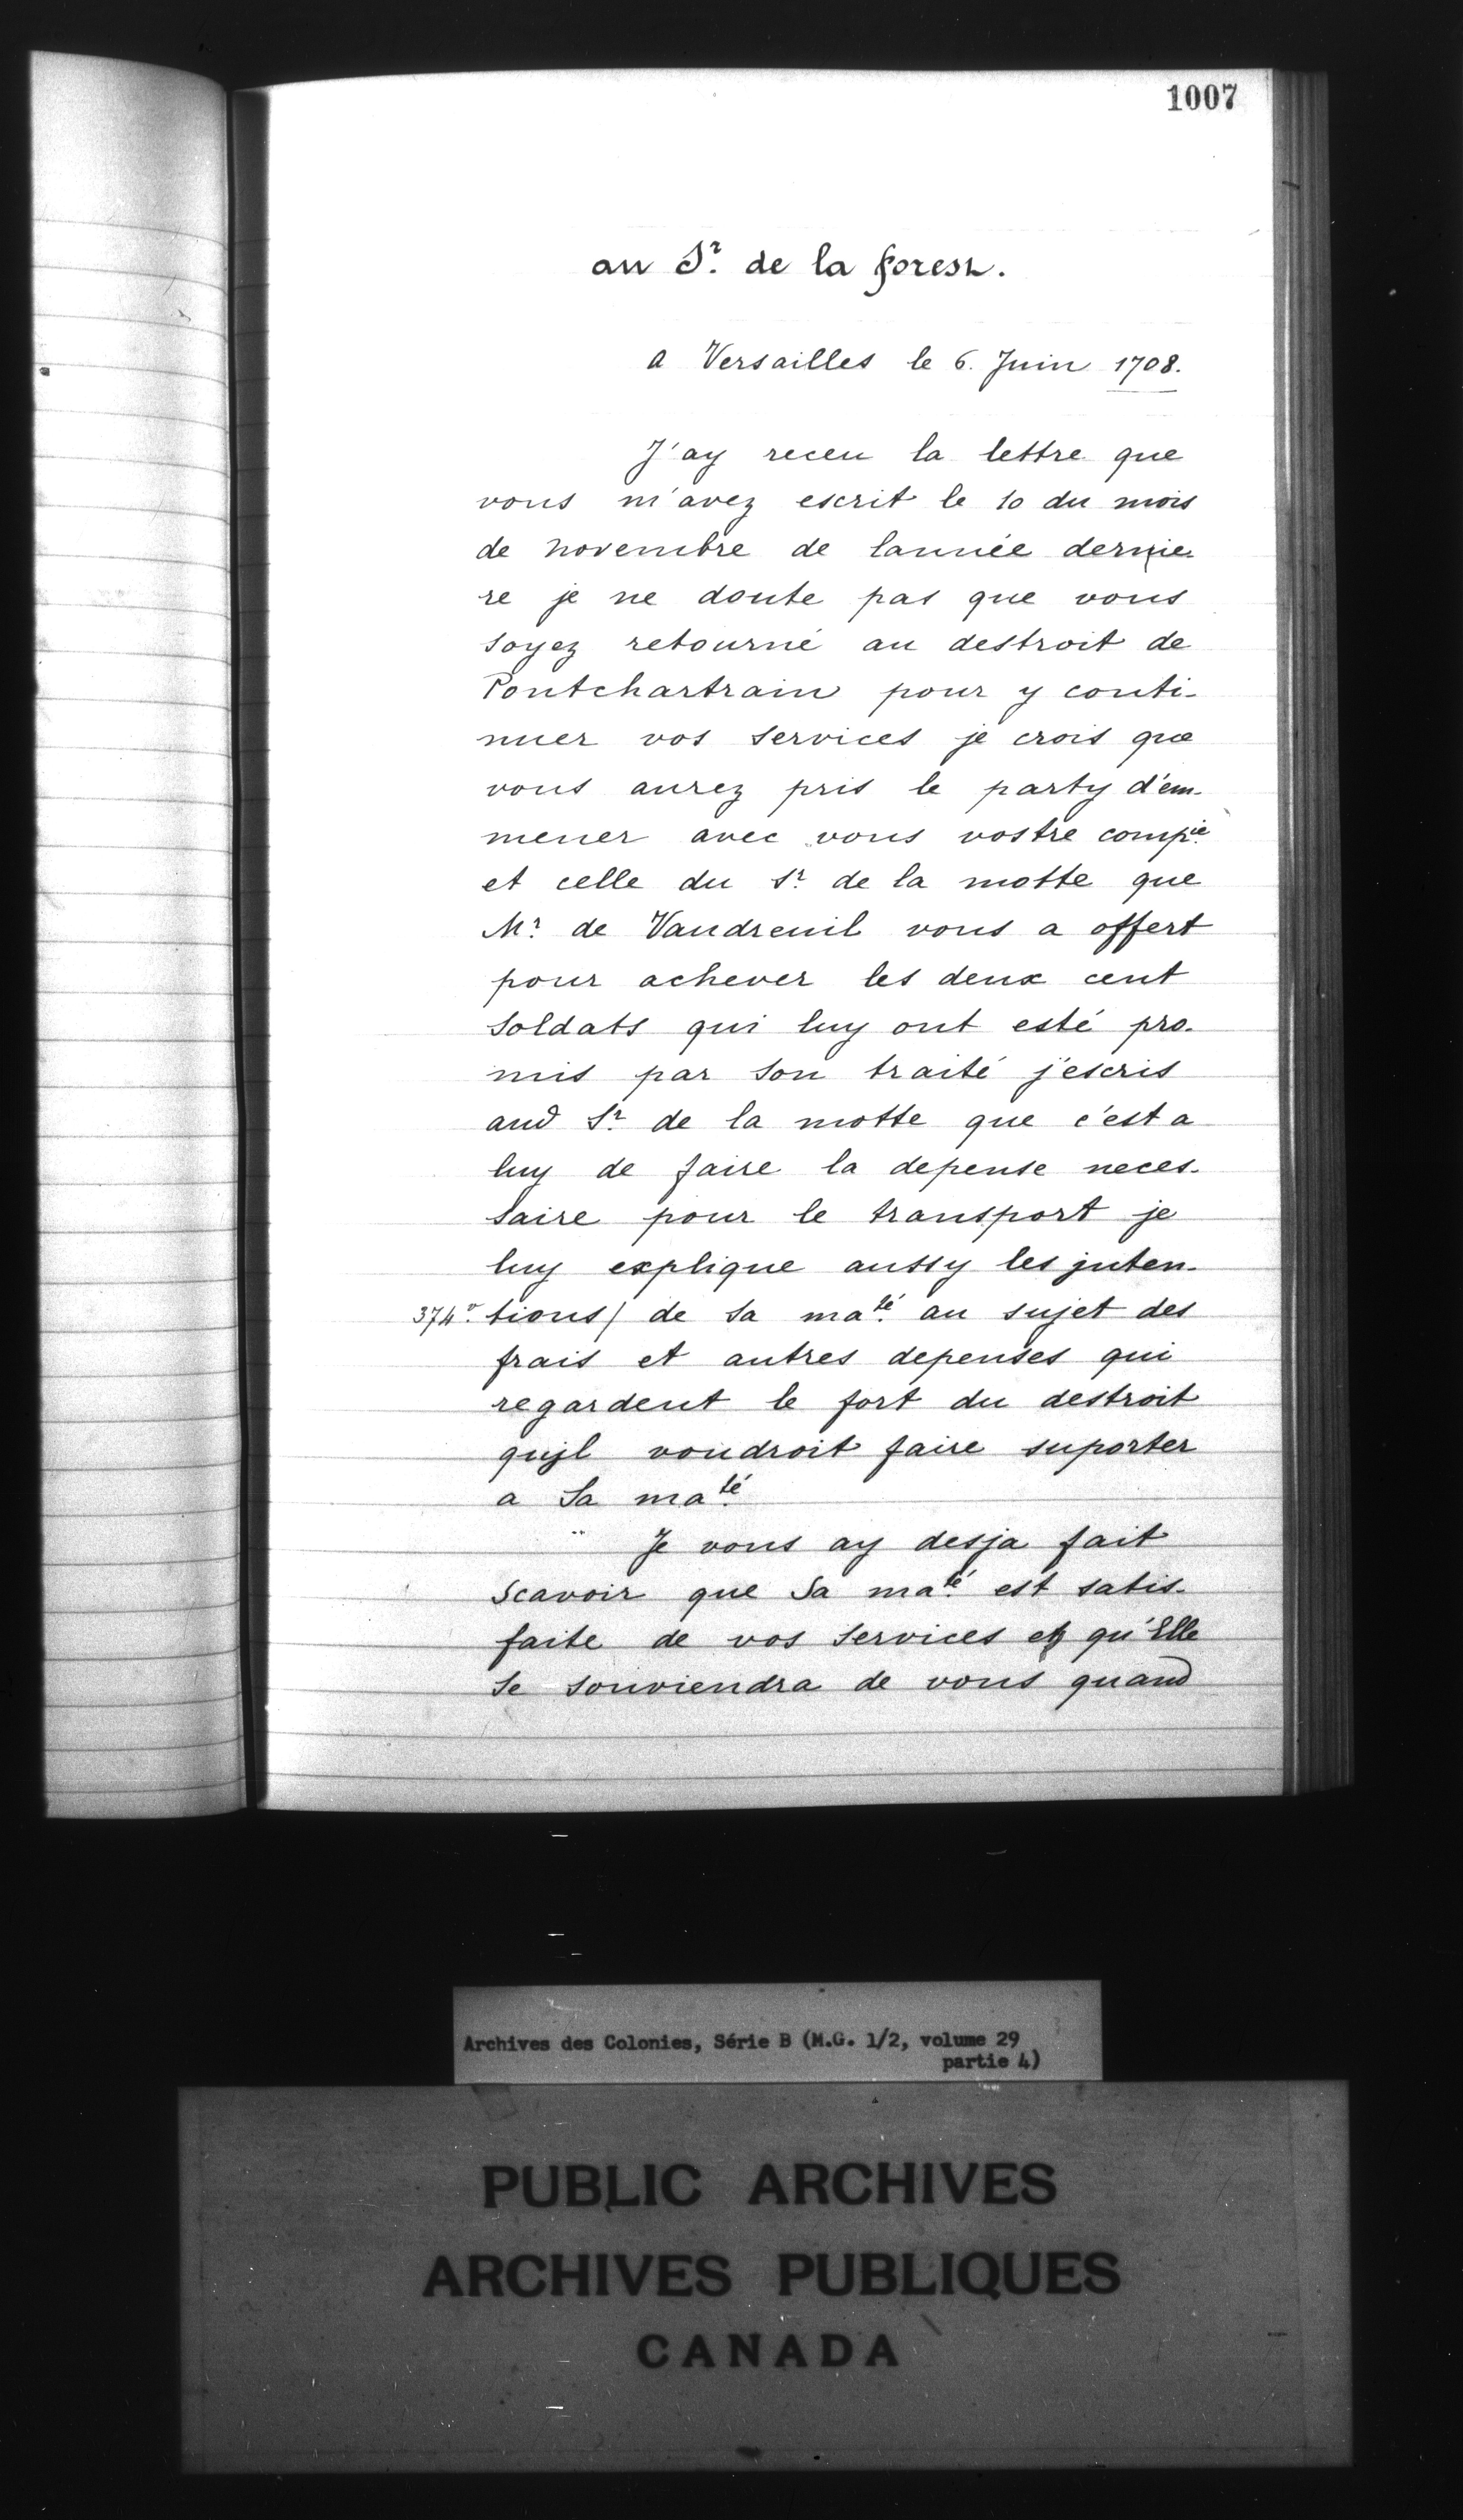 1007
au Sr. de la forest.
a Versailles le 6. Juin 1708.
J'ay receu la lettre que
vous m'avez escrit le 10 du mois
de novembre de lannée dernie-
re je ne doute pas que vous
soyez retourné au destroit de
Pontchartrain pour y conti-
nuer vos services je crois que
vous aurez pris le party d'em-
mener avec vous vostre compie.
et celle du sr. de la motte que
Mr. de Vaudreuil vous a offert
pour achever les deux cent
soldats qui luy ont esté pro-
mis par son traité j'escris
aud Sr. de la motte que c'est a
luy de faire la depense neces-
saire pour le transport je
luy explique aussy les jnten-
374vo. tions/ de sa maté. au sujet des
frais et autres depenses qui
regardent le fort du destroit
qujl voudroit faire suporter
a Sa maté.
Je vous ay desja fait
scavoir que Sa maté. est satis-
faite de vos services et qu'Elle
se souviendra de vous quand
Archives des Colonies, Série B (M.G. 1/2, volume 29
partie 4)
PUBLIC ARCHIVES
ARCHIVES PUBLIQUES
CANADA